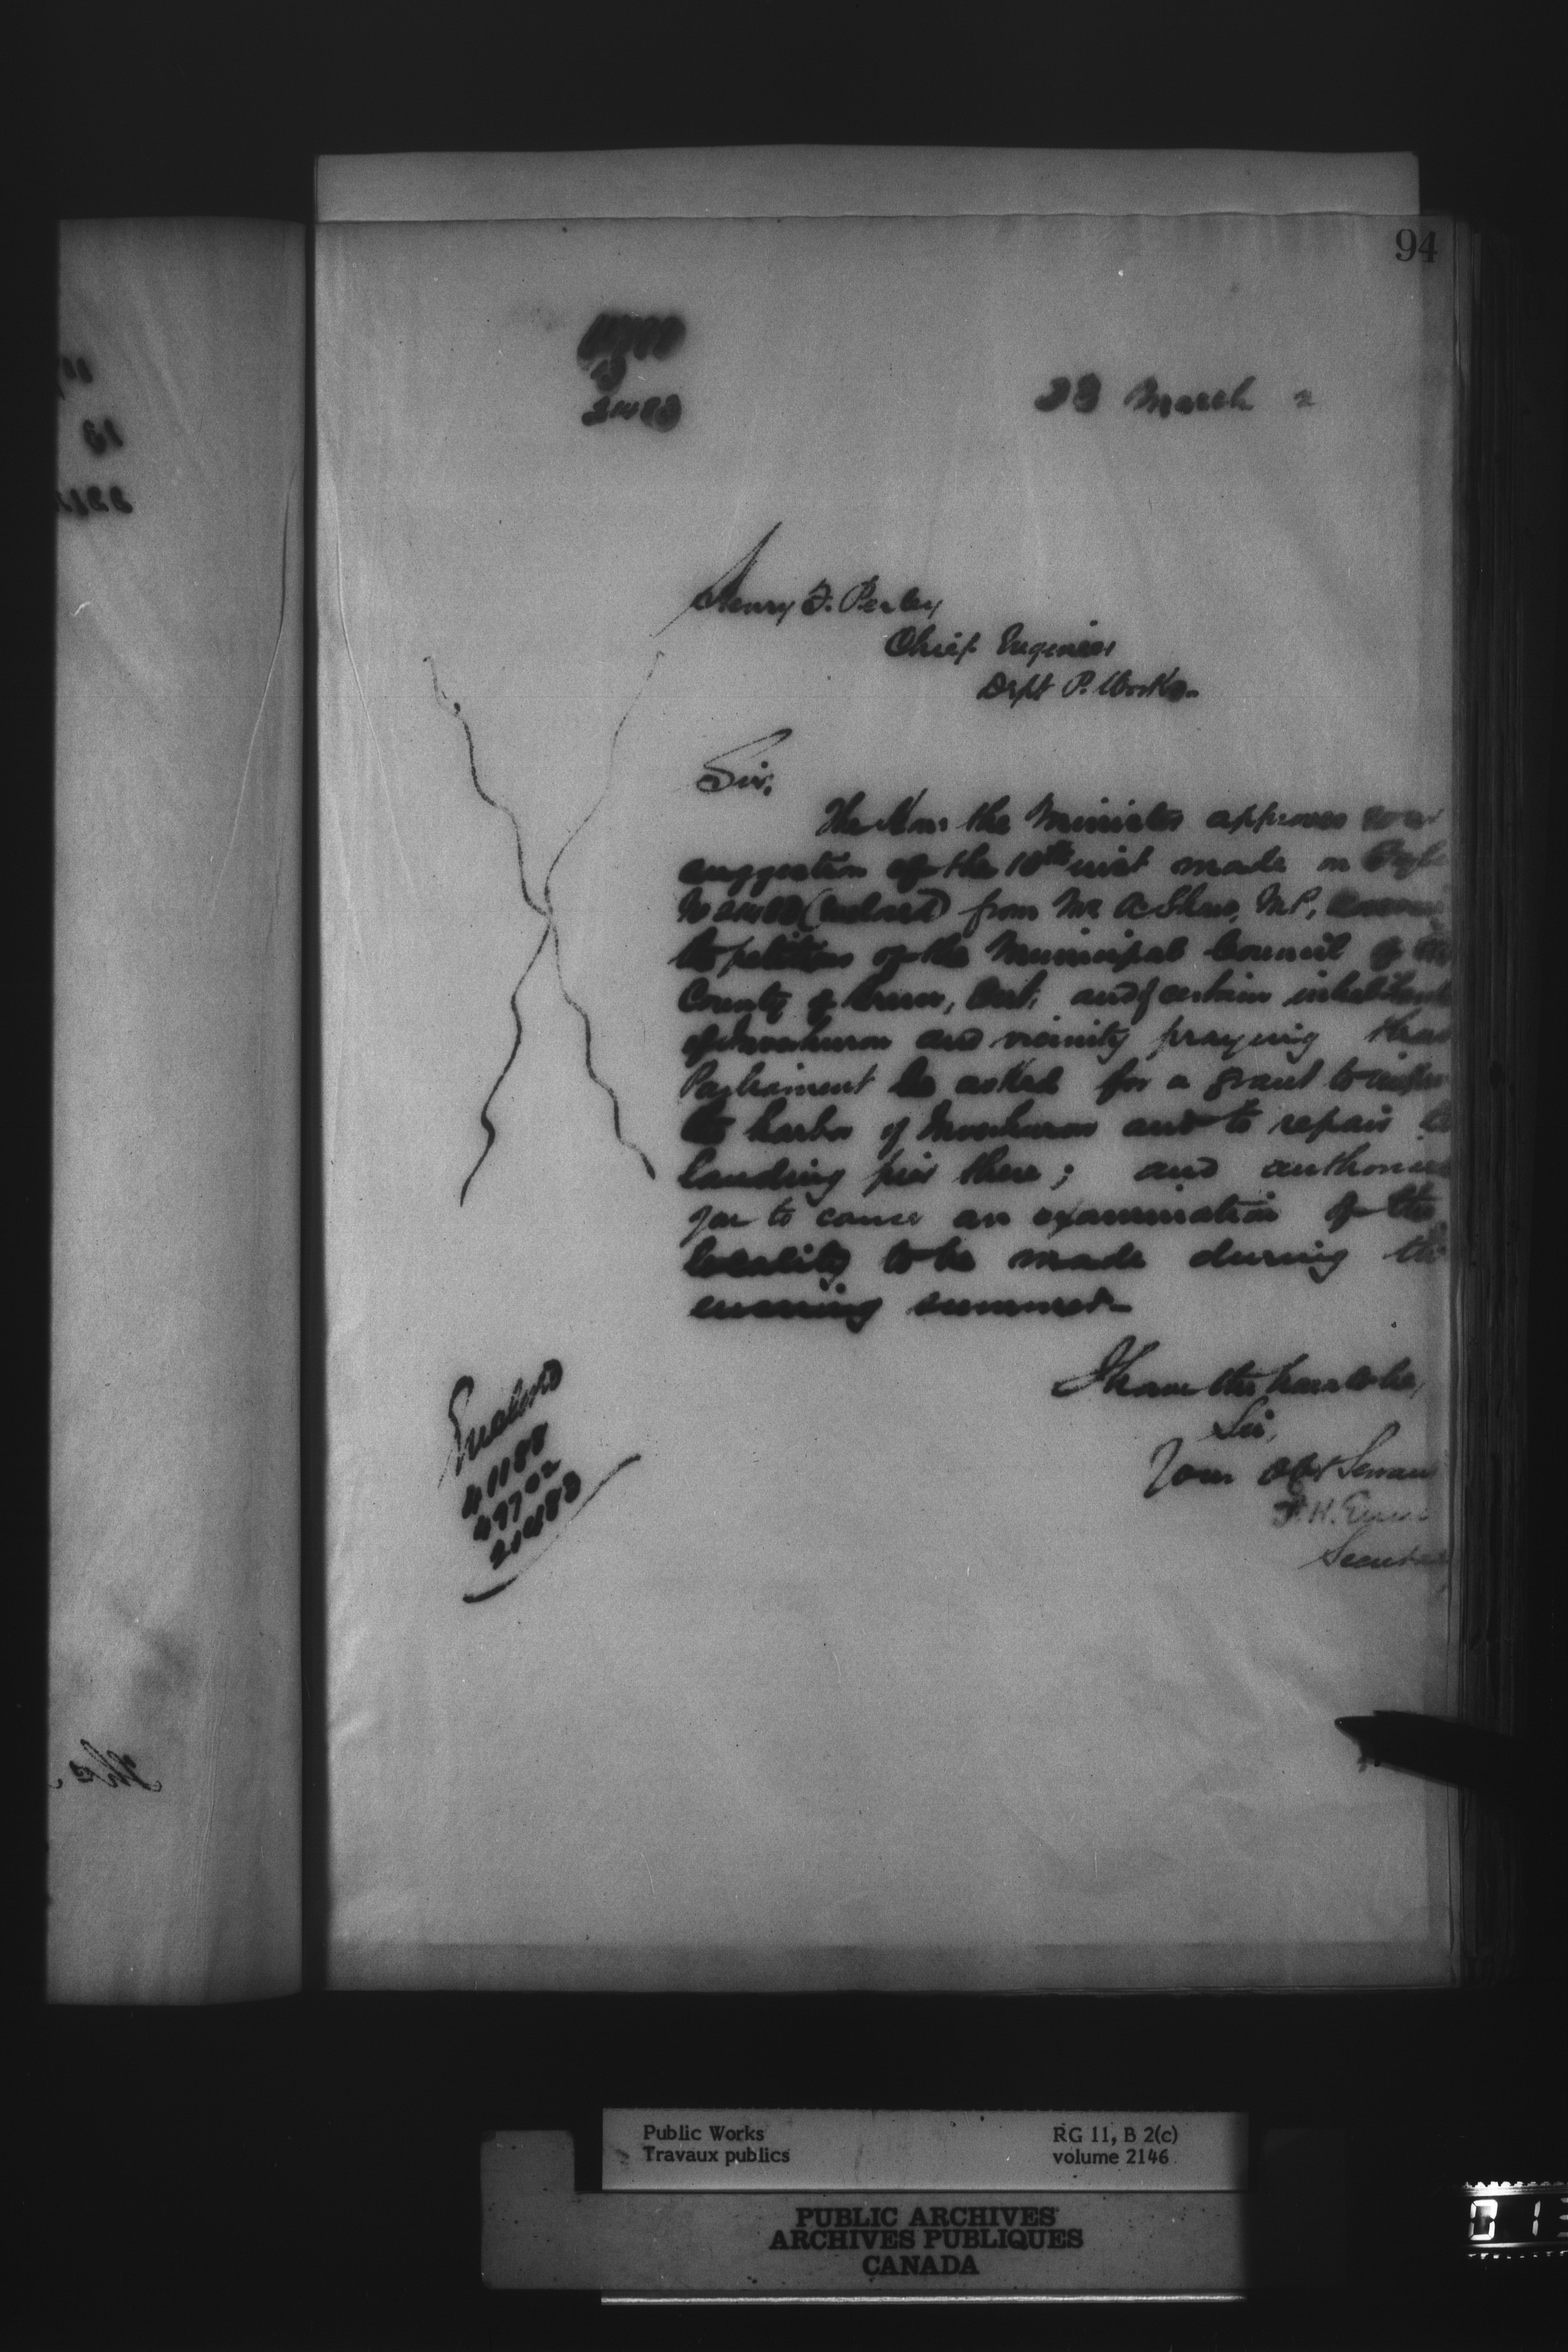 94
23 March 2
Henry F. Perley
Chief Engineer
Dept P. Works.
Sir,
The Hon: the Minister approves your
suggestion of the 10th inst made on
No 20483 (enclosed) from Mr A Shaw, M.P,
the petition of the Municipal Council of the
County of Bruce, Ont, and of certain inhabitants
of Inverhuron and vicinity praying that
Parliament be asked for a grant to
the harbor of Inverhuron and to repair the
landing pier there; and authorises
you to cause an examination of the
locality to be made during the
ensuing summer.
I have the honor to be,
Sir,
Your Obt Servant
F. H. Ennis
Secretary
Enclosed
41188
49702
20483
Public Works
Travaux publics
RG 11, B 2(c)
volume 2146
PUBLIC ARCHIVES
ARCHIVES PUBLIQUES
CANADA
013